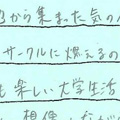 から集まった気の
サークルに燃えるの
も楽しい大学生活
想像